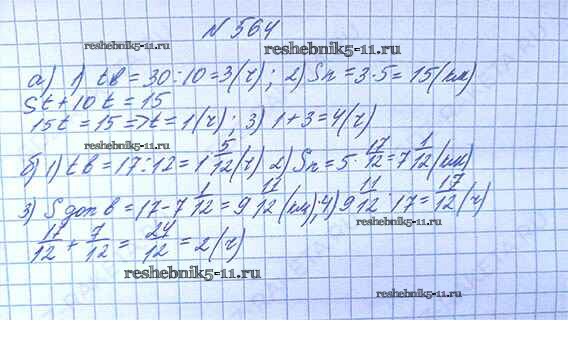 № 564
reshebnik5-11.ru
reshebnik5-11.ru
а) 1) tв = 30 : 10 = 3 (ч); 2) Sп = 3 · 5 = 15 (км)
5t + 10t = 15
15t = 15 => t = 1 (ч); 3) 1 + 3 = 4 (ч)
reshebnik5-11.ru
б) 1) tв = 17 : 12 = 1 5/12 (ч) 2) Sп = 5 · 17/12 = 7 1/12 (км)
3) S доп в = 17 - 7 1/12 = 9 11/12 (км); 4) 9 11/12 : 17 = 17/12 (ч)
17/12 + 7/12 = 24/12 = 2 (ч)
reshebnik5-11.ru
reshebnik5-11.ru